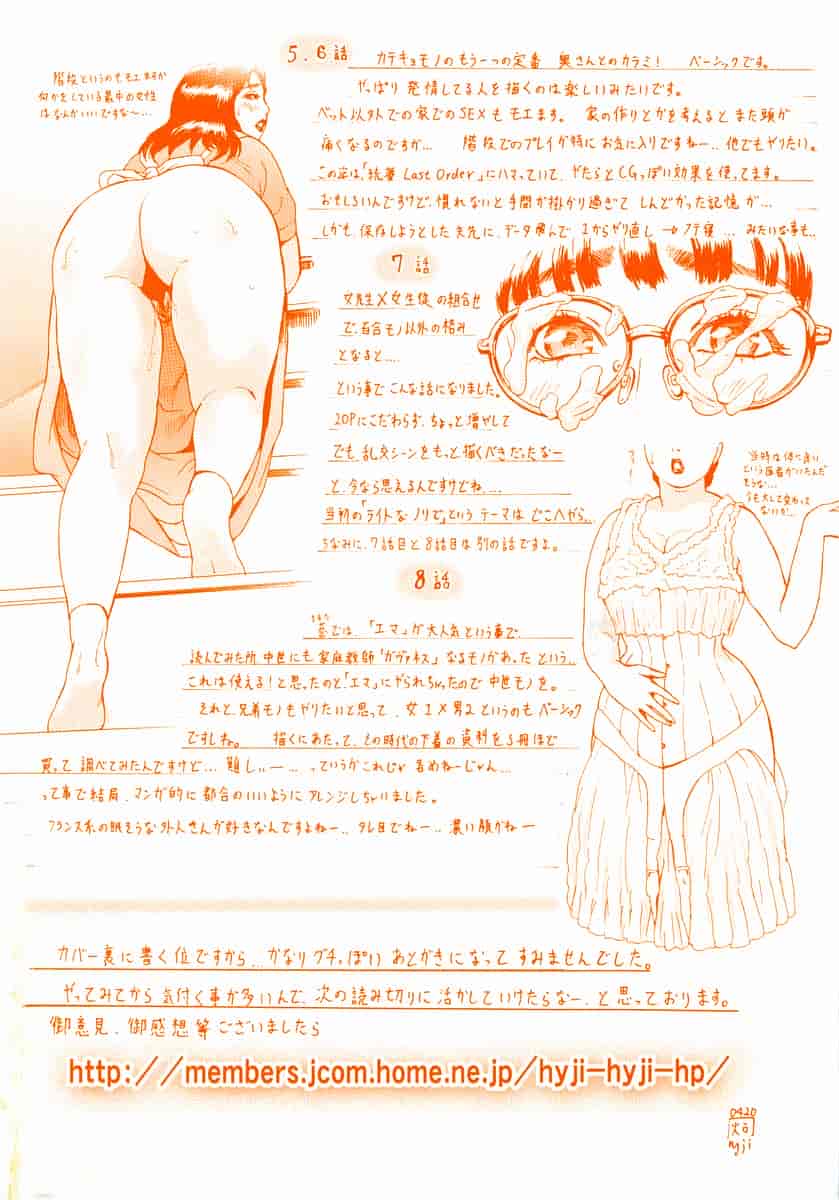 階段というのもモエますが
何かをしている最中の女性
はなんかいいですな〜…
5.6話 カテキョモノのもう一つの定番 奥さんとのカラミ! ベーシックです。
やっぱり発情してる人を描くのは楽しいみたいです。
ベット以外での家でのSEXもモエます。 家の作りとかを考えるとまた頭が
痛くなるのですが… 階段でのプレイが特にお気に入りですねー.. 他でもやりたい。
この辺は「銃夢 Last Order」にハマっていて、やたらとCGっぽい効果を使ってます。
おもしろいんですけど、慣れないと手間が掛かり過ぎて しんどかった記憶が…
しかも、保存しようとした矢先に、データ飛んで 1からやり直し → フテ寝 … みたいな事も..
7話
女先生×女生徒の組合せ
で、百合モノ以外の絡み
となると….
という事で こんな話になりました。
20Pにこだわらず、ちょっと増やして
でも、乱交シーンをもっと描くべきだったなー
と、今なら思えるんですけどね….
当初の「ライトなノリで」というテーマは どこへやら..
ちなみに、7話目と8話目は別の話ですよ。
当時は体に良い
という医者がいたんだ
そうな…
今も大して変わって
ないが…
8話
では、「エマ」が大人気という事で、
読んでみた所 中世にも家庭教師「ガヴァネス」なるモノがあったという..
これは使える!と思ったのと「エマ」にヤられちゃったので中世モノを。
それと、兄弟モノもヤりたいと思って、女1×男2というのもベーシック
ですしね。 描くにあたって、その時代の下着の資料を3冊ほど
買って調べてみたんですけど… 難しぃー… っていうかこれじゃ 舐めねーじゃん…
って事で結局、マンガ的に都合のいいようにアレンジしちゃいました。
フランス系の眠そうな外人さんが好きなんですよねー.. タレ目でねー.. 濃い顔がねー
カバー裏に書く位ですから… かなりグチっぽい あとがきになって すみませんでした。
やってみてから気付く事が多いんで、次の読み切りに活かしていけたらなー、と思っております。
御意見、御感想等ございましたら
http://members.jcom.home.ne.jp/hyji-hyji-hp/
0420
hyji